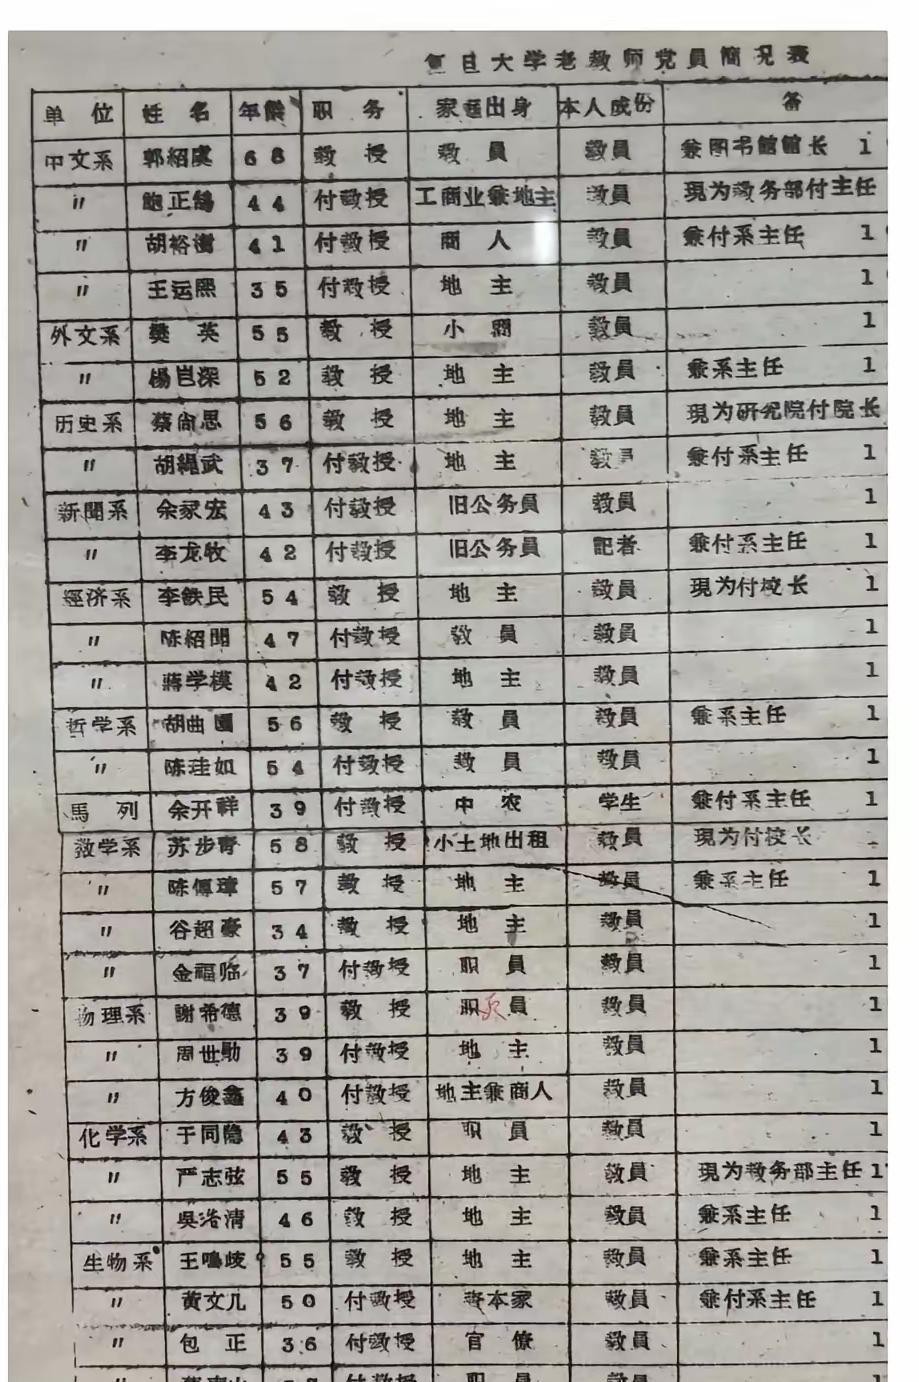 复旦大学老教师党员简况表
单 位 姓 名 年龄 职 务 家庭出身 本人成份 备
中文系 郭紹虞 68 教 授 教 員 教員 兼图书館館长 1
〃 鮑正鵠 44 付教授 工商业兼地主 教員 現为教务部付主任
〃 胡裕樹 41 付教授 商 人 教員 兼付系主任 1
〃 王运熙 35 付教授 地 主 教員 1
外文系 樊 英 55 教 授 小 商 教員 1
〃 楊岂深 52 教 授 地 主 教員 兼系主任 1
历史系 蔡尙思 56 教 授 地 主 教員 現为研究院付院长
〃 胡繩武 37 付教授 地 主 教員 兼付系主任 1
新聞系 余家宏 43 付教授 旧公务員 教員 1
〃 李龙牧 42 付教授 旧公务員 記者 兼付系主任 1
經济系 李鉄民 54 教 授 地 主 教員 現为付校长 1
〃 陈紹聞 47 付教授 教 員 教員 1
〃 蔣学模 42 付教授 地 主 教員 1
哲学系 胡曲園 56 教 授 教 員 教員 兼系主任 1
〃 陈珪如 54 付教授 教 員 教員 1
馬 列 余开祥 39 付教授 中 农 学生 兼付系主任 1
数学系 苏步青 58 教 授 小土地出租 教員 現为付校长
〃 陈傳璋 57 教 授 地 主 教員 兼系主任 1
〃 谷超豪 34 教 授 地 主 教員 1
〃 金福临 37 付教授 职 員 教員 1
物理系 謝希德 39 教 授 职 員 教員 1
〃 周世勛 39 付教授 地 主 教員 1
〃 方俊鑫 40 付教授 地主兼商人 教員 1
化学系 于同隐 43 教 授 职 員 教員 1
〃 严志弦 55 教 授 地 主 教員 現为教务部主任 1
〃 吳浩清 46 教 授 地 主 教員 兼系主任 1
生物系 王鳴岐 55 教 授 地 主 教員 兼系主任 1
〃 黄文几 50 付教授 資本家 教員 兼付系主任 1
〃 包 正 36 付教授 官 僚 教員 1